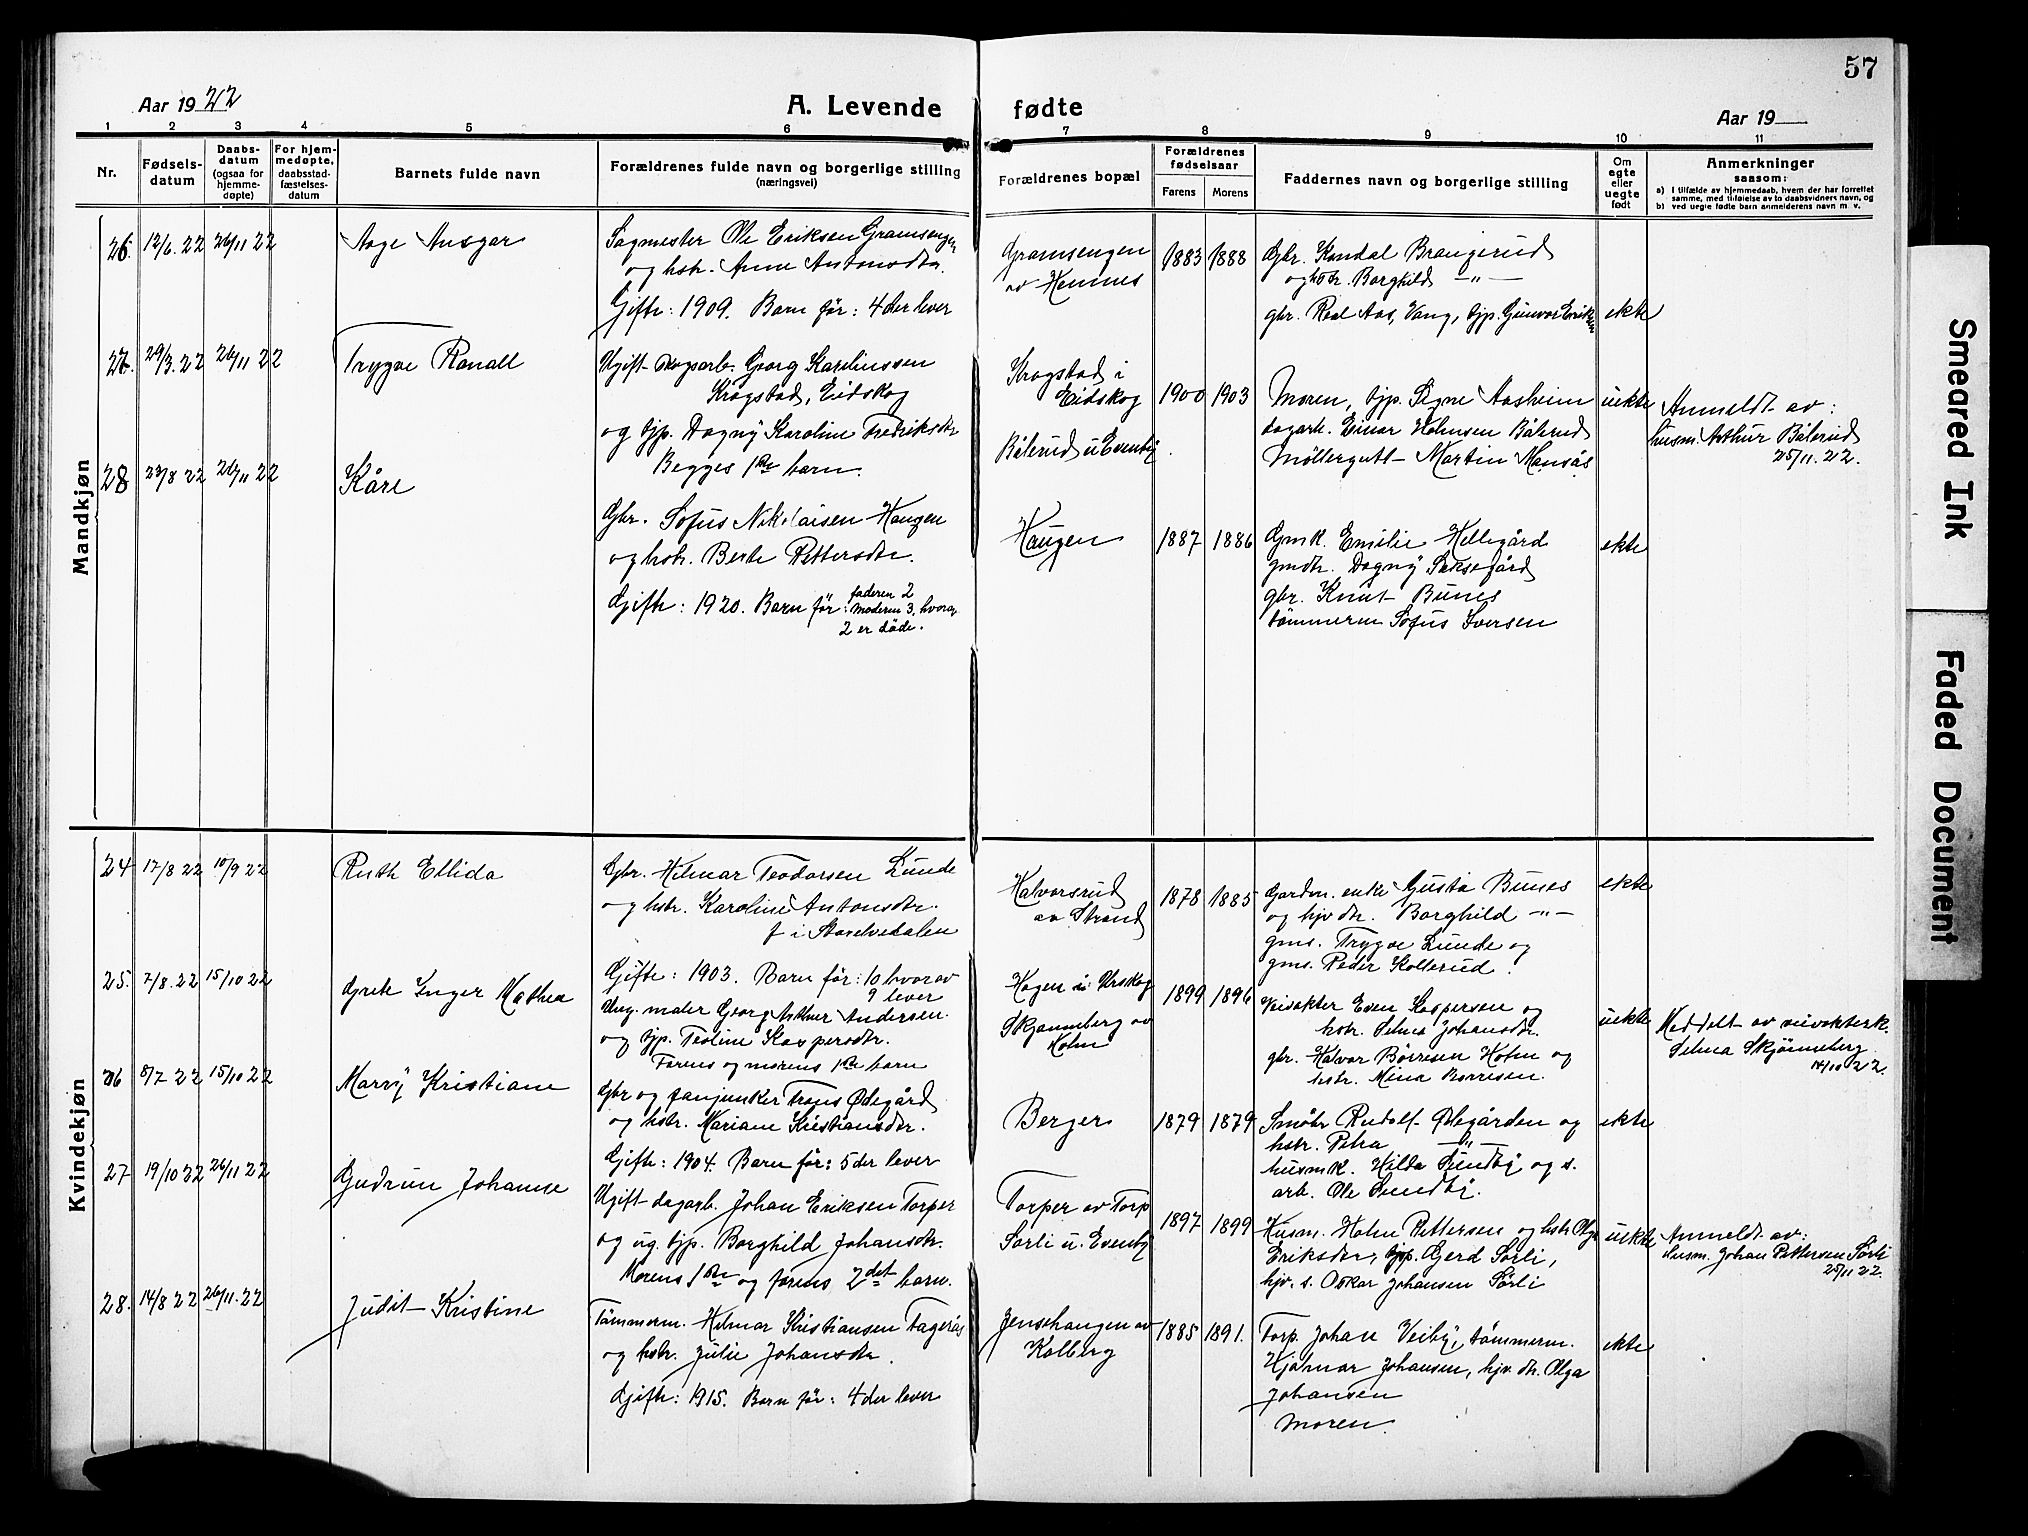 57
Aar 1922
A. Levende fødte
Aar 19
1 2 3 4 5 6 7 8 9 10 11
Nr.
Fødsels-
datum
Daabs-
datum
(ogsaa for
hjemme-
døpte)
For hjem-
medøpte,
daabsstad-
fæstelses-
datum
Barnets fulde navn
Forældrenes fulde navn og borgerlige stilling
(næringsvei)
Forældrenes bopæl
Forældrenes
fødselsaar
Farens Morens
Faddernes navn og borgerlige stilling
Om
egte
eller
uegte
født
Anmerkninger
saasom:
a) I tilfælde av hjemmedaab, hvem der har forrettet
samme, med tilføielse av to daabsvidners navn, og
b) ved uegte fødte barn anmelderens navn m. v.
Mandkjøn
26. 12/6. 22 26/11 22
Aage Ansgar
Sagmester Ole Eriksen Gramsengen
og hstr. Anne Antonsdtr.
Gifte: 1909. Barn før: 4 der lever
Gramsengen
av Hennes
1883 1888
Gbr. Kondal Brangerud
og hstr. Borghild -"-
gbr. Aas, Vang, tjp. Gunvor Eriksen
ekte
27. 29/3. 22 26/11 22
Trygve Ronall
Ugift skogsarb. Georg Karelinssen
Krogstad, Eidskog
og tjp. Dagny Karoline Fredriksdtr
Begges 1ste barn.
Krogstad i
Eidskog
Bålerud u Evenby.
1900 1903
Moren, tjp. Signe Aasheim
dagarb. Einar Holmsen Bålerud
Møllergutt Martin Monsås
uekte
Anmeldt av:
husm. Arthur Bålerud
25/11. 22.
28 23/8 22 26/11 22
Kåre
Gbr. Sofus Nikolaisen Haugen
og hstr. Berte Pettersdtr.
Gifte: 1920. Barn før: faderen 2
moderen 3, hvorav
2 er døde.
Haugen
1887 1886
Gmk. Emilie Hellegård
gmdtr. Dagny Saksegård
gbr. Knut Bunes
tømmerm Sofus Iversen
ekte
Kvindekjøn
24 17/8 22 10/9 22
Ruth Ellida
Gbr. Hilmar Teodorsen Lunde
og hstr. Karoline Antonsdtr.
f i Storelvedalen
Gifte: 1903. Barn før: 10 hvorav
9 lever
Halvorsrud
av Strand
1878 1885
Garden. enke Gusta Bunes
og hjv dtr. Borghild -"-
gms. Trygve Lunde og
gms. Peder Kollerud.
ekte
25. 7/8. 22 15/10 22
Grete Inger Mathea
Ung. maler Georg Arthur Andersen.
og tjp. Teoline Kaspersdtr.
Farens og morens 1ste barn
Hagen i Urskog
Skjønneberg av
Holm
1899 1896
Veivokter Even Kaspersen og
hstr. Selma Johansdtr.
gbr. Halvor Børresen Holm og
hstr. Mina Børresen.
uekte
Meddelt av veivokterk.
Selma Skjønneberg
14/10 22.
26 8/7 22 15/10 22
Marry Kristiane
Gbr og fanjunker Frans Ødegård
og hstr. Mariane Kristiansdtr.
Gifte: 1904. Barn før: 5 der lever
Berger
1879 1879
Smøbr Rudolf Ødegården og
hstr. Petra -"-
husmk. Hilda Sundby og s.
arb. Ole Sundby.
ekte
27 19/10 22 26/11 22
Gudrun Johanne
Ugift dagarb. Johan Eriksen Torper
og ug. tjp. Borghild Johansdtr.
Morens 1ste og farens 2det barn.
Torper av Torp
Sørli u. Evenby
1897 1899
Husm. Holm Pettersen og hstr Olga
Eriksdtr, tjp. Gjerd Sørli,
hjv. s. Oskar Johansen Sørli
uekte
Anmeldt av:
husm. Johan Pettersen Sørli
25/11 22.
28. 14/8 22 26/11. 22
Judit Kristine
Tømmerm. Hilmar Kristiansen Fagerås
og hstr. Julie Johansdtr.
Gifte: 1915. Barn før: 4 der lever
Jenshaugen av
Kolberg
1885 1891.
Torp. Johan Veiby, tømmerm.
Hjalmar Johansen, hjv. dtr. Olga
Johansen
moren.
ekte
Smeared Ink
Faded Document